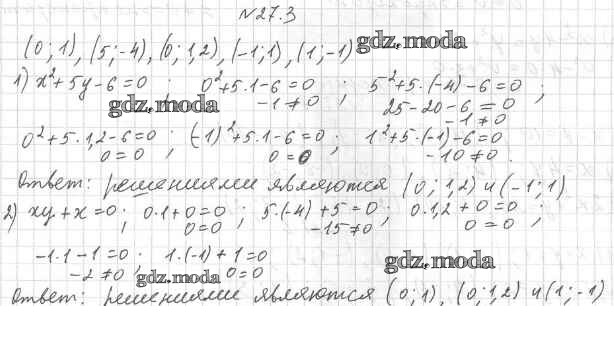 №27.3
(0; 1), (5; -4), (0; 1,2), (-1; 1), (1; -1) gdz.moda
1) x²+5y-6=0 ; 0²+5·1-6=0 ; 5²+5·(-4)-6=0 ;
gdz.moda -1≠0 ; 25-20-6=0
-1≠0
0²+5·1,2-6=0 ; (-1)²+5·1-6=0 ; 1²+5·(-1)-6=0
0=0 ; 0=0 -10≠0 .
Ответ: решениями являются (0; 1,2) и (-1; 1)
2) xy+x=0 ; 0·1+0=0 ; 5·(-4)+5=0 ; 0·1,2+0=0 ;
0=0 -15≠0 0=0
-1·1-1=0 ; 1·(-1)+1=0 gdz.moda
-2≠0 ; gdz.moda 0=0
Ответ: решениями являются (0; 1), (0; 1,2) и (1; -1)